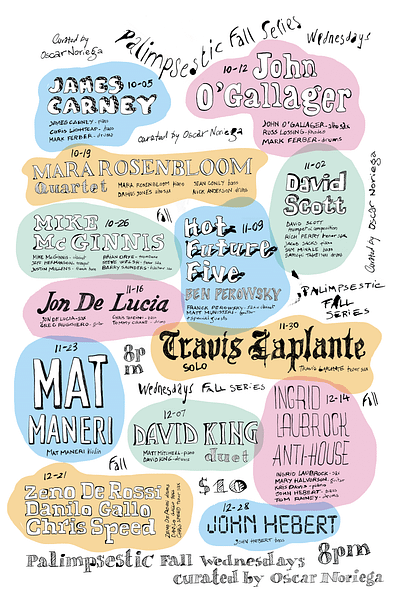 Curated by
Oscar Noriega
Palimpsestic Fall Series Wednesdays
JAMES 10-05
CARNEY
JAMES CARNEY - piano
CHRIS LIGHTCAP - bass
MARK FERBER - drums
10-12 John
O'Gallager
JOHN O'GALLAGER - alto sax
RUSS LOSSING - Rhodes
MARK FERBER - drums
curated by Oscar Noriega
10-19
MARA ROSENBLOOM
Quartet
MARA ROSENBLOOM piano
SEAN CONLY bass
DARIUS JONES alto sax
NICK ANDERSON drums
11-02
David
Scott
DAVID SCOTT
trumpet & composition
RICH PERRY tenor sax
JACOB SACKS piano
SATOSHI TAKEISHI drums
Curated by Oscar Noriega
MIKE 10-26
McGINNIS
MIKE McGINNIS
JUSTIN MULLENS
BARRY SAUNDERS
Hot 11-09
Future
Five
BEN PEROWSKY
MATT MUNISTERI - guitar
especial guests
PALIMPSESTIC
FALL
SERIES
11-16
Jon De Lucia
JON DE LUCIA - sax
GREG RUGGIERO - guitar
TOMMY CRANE - drums
11-30
Travis Laplante
SOLO
TRAVIS LAPLANTE tenor sax
11-23
MAT
MANERI
MAT MANERI violin
8pm
Wednesdays FALL SERIES
12-07
DAVID KING
duet
MATT MITCHELL - piano
DAVID KING - drums
INGRID 12-14
LAUBROCK
ANTI-HOUSE
INGRID LAUBROCK - sax
MARY HALVORSON - guitar
KRIS DAVIS - piano
JOHN HEBERT - bass
TOM RAINEY - drums
Fall
Fall
$10
12-21
Zeno De Rossi
Danilo Gallo
Chris Speed
12-28
JOHN HEBERT
JOHN HEBERT bass
Palimpsestic Fall Wednesdays 8pm
curated by Oscar Noriega